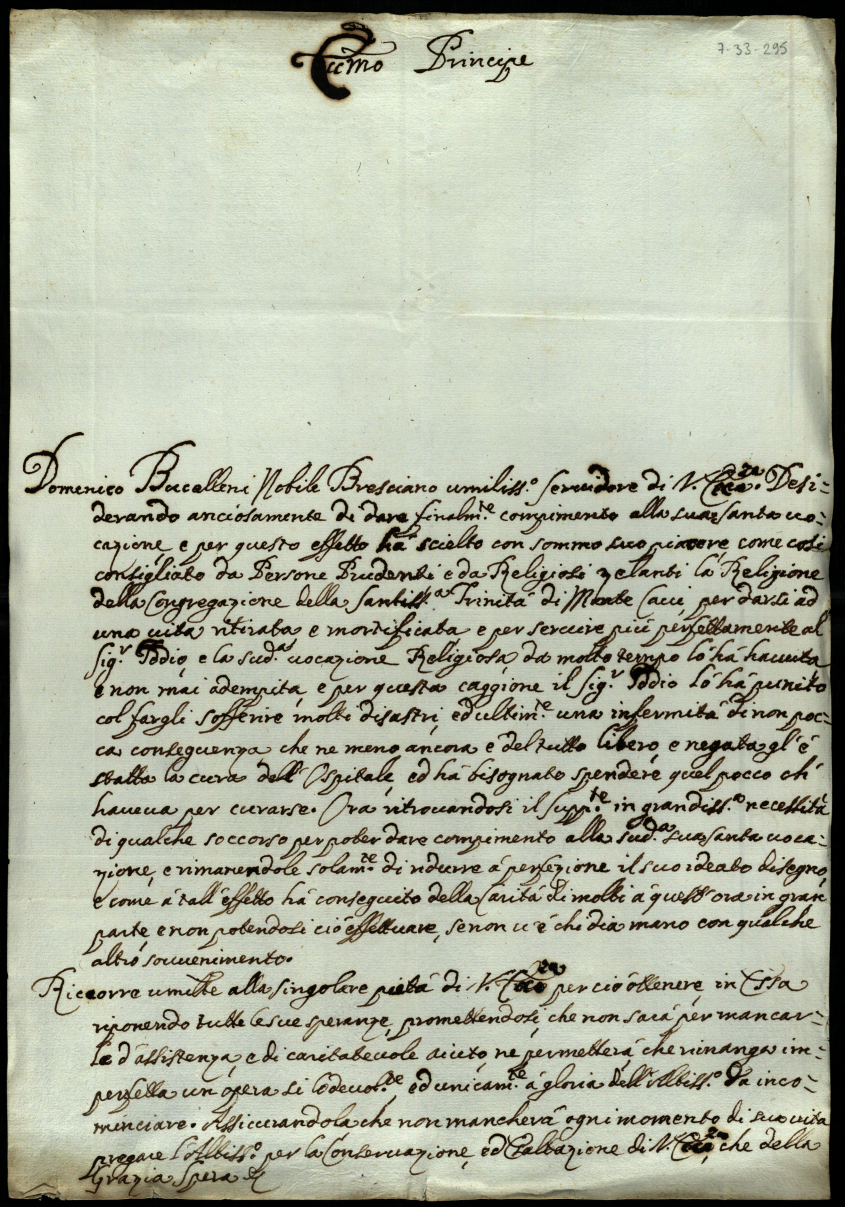 7-33-295
Eccmo Principe
Domenico Bucelleni Nobile Bresciano umiliss.o servidore di V. Ecc.za Desi-
derando anciosamente di dare finalm.te compimento alla sua santa vo-
cazione e per questo effetto ha scielto con sommo suo piacere come cosi
consigliato da Persone Prudenti e da Religiosi zelanti la Religione
della Congregazione della Santiss.a Trinità di Monte Cavi per darsi ad
una vita ritirata e mortificata e per servire più perfettamente al
Sig.r Iddio, e la sud.a vocazione Religiosa, da molto tempo lò hà havuta
e non mai adempita, e per questa caggione il Sig.r Iddio Lò hà punito
col fargli sofferire molti disastri, ed ultim.te una infermità di non poc-
ca conseguenza che ne meno ancora è del tutto libero, e negata gl'è
statta la cura dell'Ospitale, ed hà bisognato spendere quel pocco ch'
haveva per curarse. Ora ritrovandosi il supp.te in grandiss.a necessità
di qualche soccorso per poter dare compimento alla sud.a sua santa voca-
zione, e rimanendole solam.te di ridurre à perfezione il suo ideato disegno,
e come à tall'effetto hà conseguito della Carità di molti à quest'ora in gran
parte, e non potendosi ciò effettuare, se non v'è chi dia mano con qualche
altro souvenimento.
Riccorre umilte alla singolare pietà di V. Ecc.za per ciò ottenere, in Essa
riponendo tutte le sue speranze, promettendosi, che non sarà per mancar-
le d'assistenza, e di caritatevole aiuto, ne permetterà che rimanga im-
perfetta un'opera si lodevol.te, ed unicam.te à gloria dell'Altiss.o da inco-
minciare. Assicurandola che non mancherà ogni momento di sua vita
pregare l'Altiss.o per la Conservazione, ed Esaltazione di V. Ecc.za, che della
Grazia Spera &